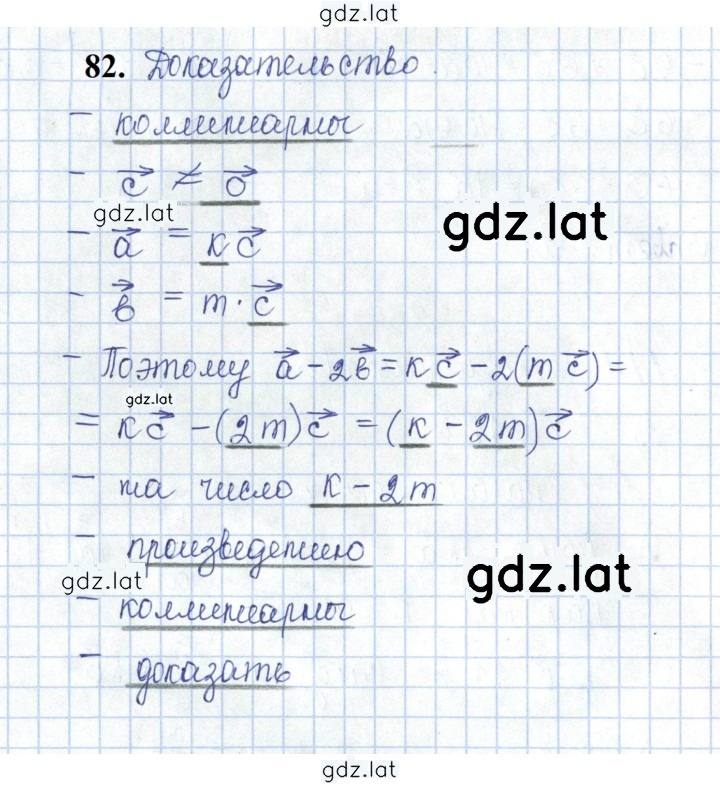 gdz.lat
82. Доказательство.
- коллинеарны
- c⃗ ≠ 0⃗
gdz.lat
gdz.lat
- a⃗ = к c⃗
- в⃗ = m · c⃗
- Поэтому a⃗ - 2в⃗ = к c⃗ - 2(m c⃗) =
gdz.lat
= к c⃗ - (2m)c⃗ = (к - 2m)c⃗
- на число к - 2m
- произведению
gdz.lat
gdz.lat
- коллинеарны
- доказать
gdz.lat